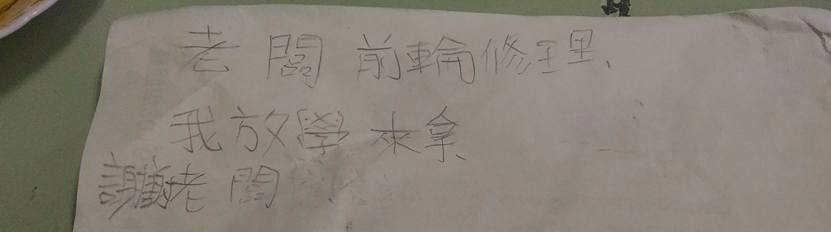 老闆前輪修理、
我放學來拿、
謝謝老闆